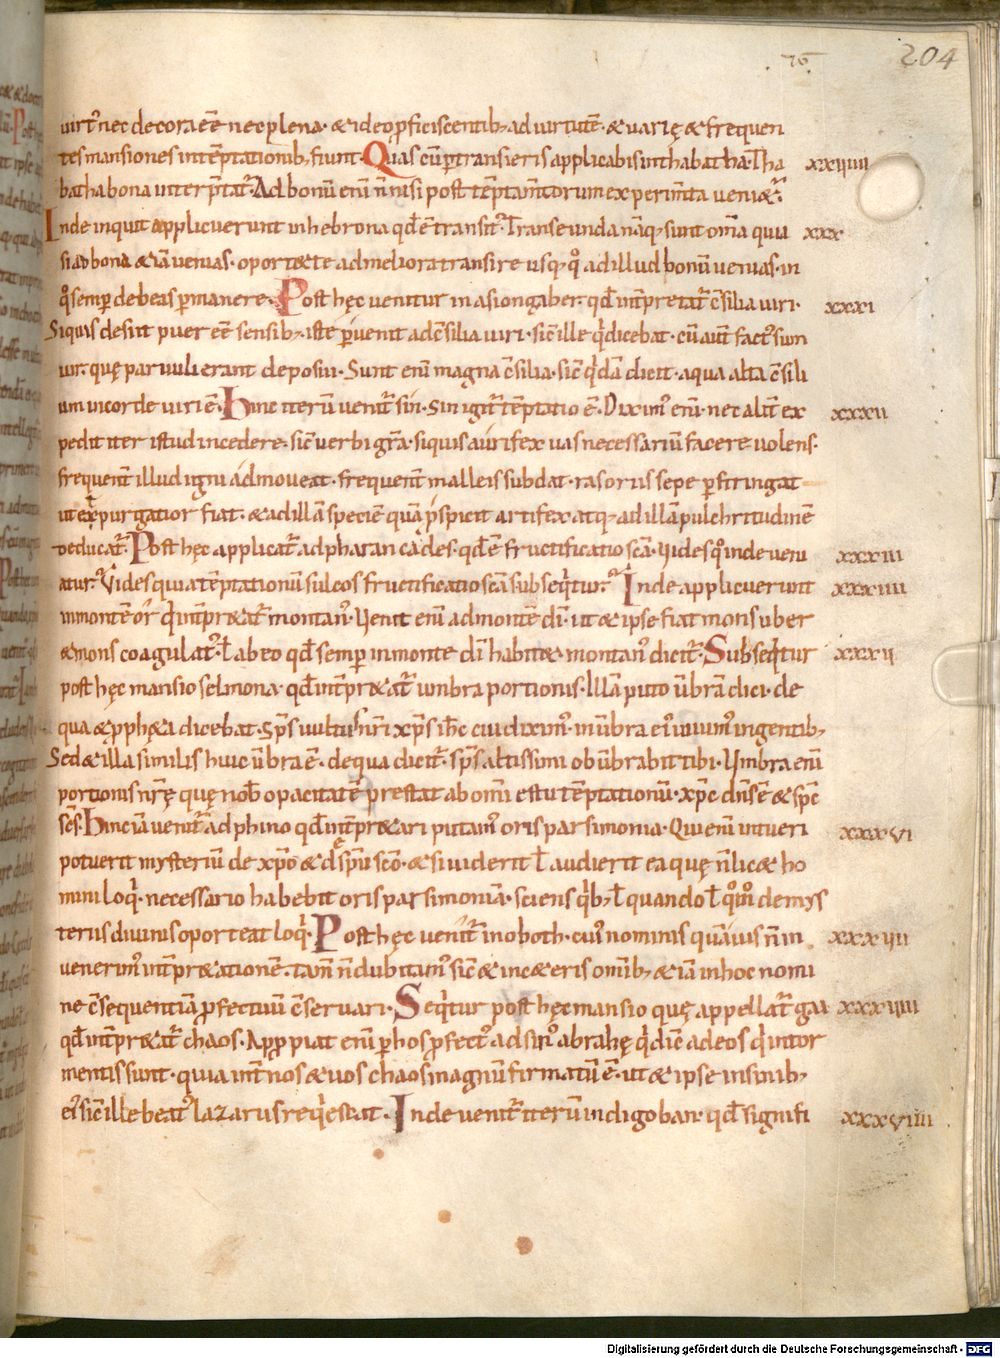 76
204
uirt᷒ nec decora eē nec plena· & ideo ꝓficiscentibꝫ ad uirtutē· & uarię & frequen
tes mansiones in tēptationibꝫ fiunt· Quas cū ꝑtransieris applicabis in thabatha· Tha xxviiii
batha bona interp̄tat᷒· Ad bonū enī n̄ nisi post tēptam̄torum experim̄ta ueni&᷒·
Inde inquit applicuerunt in hebrona qd̄ ē transit᷒· Transeunda nāqꝫ sunt om̄a qui xxx
si ad bona &iā uenias· oport& te ad meliora transire usqꝫ q̊ ad illud bonū uenias· in
q̊ semꝑ debeas ꝑmanere· Post hęc uenitur in asiongaber· qd̄ int̄pretat᷒ c̄silia uiri· xxxi
Siquis desiit puer eē sensibꝫ· iste ꝑuenit ad c̄silia uiri· sic̄ ille q̇ dicebat· cū aut̄ fact᷒ sum
uir· quę paruuli erant deposui· Sunt enī magna c̄silia· sic̄ q̇dā dicit· aqua alta c̄sili
um in corde uiri ē· Hinc iterū uenit᷒ sin· Sin igit᷒ tēptatio ē· Dixim᷒ enī· nec alit̄ ex xxxii
pedit iter istud incedere· sic̄ uerbi gr̄a· siquis aurifex uas necessariū facere uolens·
frequent̄ illud igni admoueat· frequent̄ malleis subdat· rasoriis sepe ꝑstringat
ut expurgatior fiat· & ad illā speciē quā p̄spicit artifex atqꝫ ad illā pulchritudinē
deducat᷒· Post hęc applicat᷒ ad pharan cades· qd̄ ē fructificatio sc̄a· Vides q̊ inde ueni xxxiii
atur· Vides quia tēptationū sulcos fructificatio sc̄a subseq̇tur· Inde applicuerunt xxxiiii
in monte or̄ q̇ int̄pr&at᷒ montan᷒· Venit enī ad montē dī· ut & ipse fiat mons uber
& mons coagulat᷒· ł ab eo qd̄ semꝑ in monte dī habit& montan᷒ dicit᷒· Subseq̇tur xxxv
post hęc mansio selmona· qd̄ int̄pr&at᷒ umbra portionis· Illā puto ūbrā dici· de
qua & ꝓph&a dicebat· Sp̄s uultus n̄ri xp̄s ih̄c cui dixim᷒· in ūbra ei᷒ uiuim᷒ in gentibꝫ
Sed & illa similis huic ūbra ē· de qua dicit᷒· sp̄s altissimi obūbrabit tibi· Vmbra enī
portionis nr̄ę quę nob̄ opacitatē prestat ab omni estu tēptationū· xp̄c dn̄s ē & sp̄c
sc̄s· Hinc iā uenit᷒ ad phino qd̄ int̄pr&ari putam᷒ oris parsimonia· Qui enī intueri xxxvi
potuerit mysteriū de xp̄o & d̄ sp̄u sc̄o· & si uiderit ł audierit ea quę n̄ lic& ho
mini loq̇· necessario habebit oris parsimoniā· sciens q̇bꝫ ł quando ł q̊m̊ de mys
teriis diuinis oporteat loq̇· Post hęc uenit᷒ in oboth· cui᷒ nominis quāuis n̄ in xxxvii
uenerim᷒ int̄pr&ationē· tam̄ n̄ dubitam᷒ sic̄ & in c&eris omībꝫ &iā in hoc nomi
ne c̄sequentiā ꝓfectuū c̄seruari· Seq̇tur post hęc mansio quę appellat᷒ gaa xxxviii
qd̄ int̄pr&at᷒ chaos· Appropiat enī ꝑ hos ꝓfect᷒ ad sin᷒ abrahę q̇ dic̄ ad eos q̇ in tor
mentis sunt· quia int̄ nos & uos chaos magnū firmatū ē· ut & ipse in sinibꝫ
ei᷒ sic̄ ille beat᷒ lazarus req̇escat· Inde uenit᷒ iterū in digoban· qd̄ signifi xxxviiii
Digitalisierung gefördert durch die Deutsche Forschungsgemeinschaft - DFG